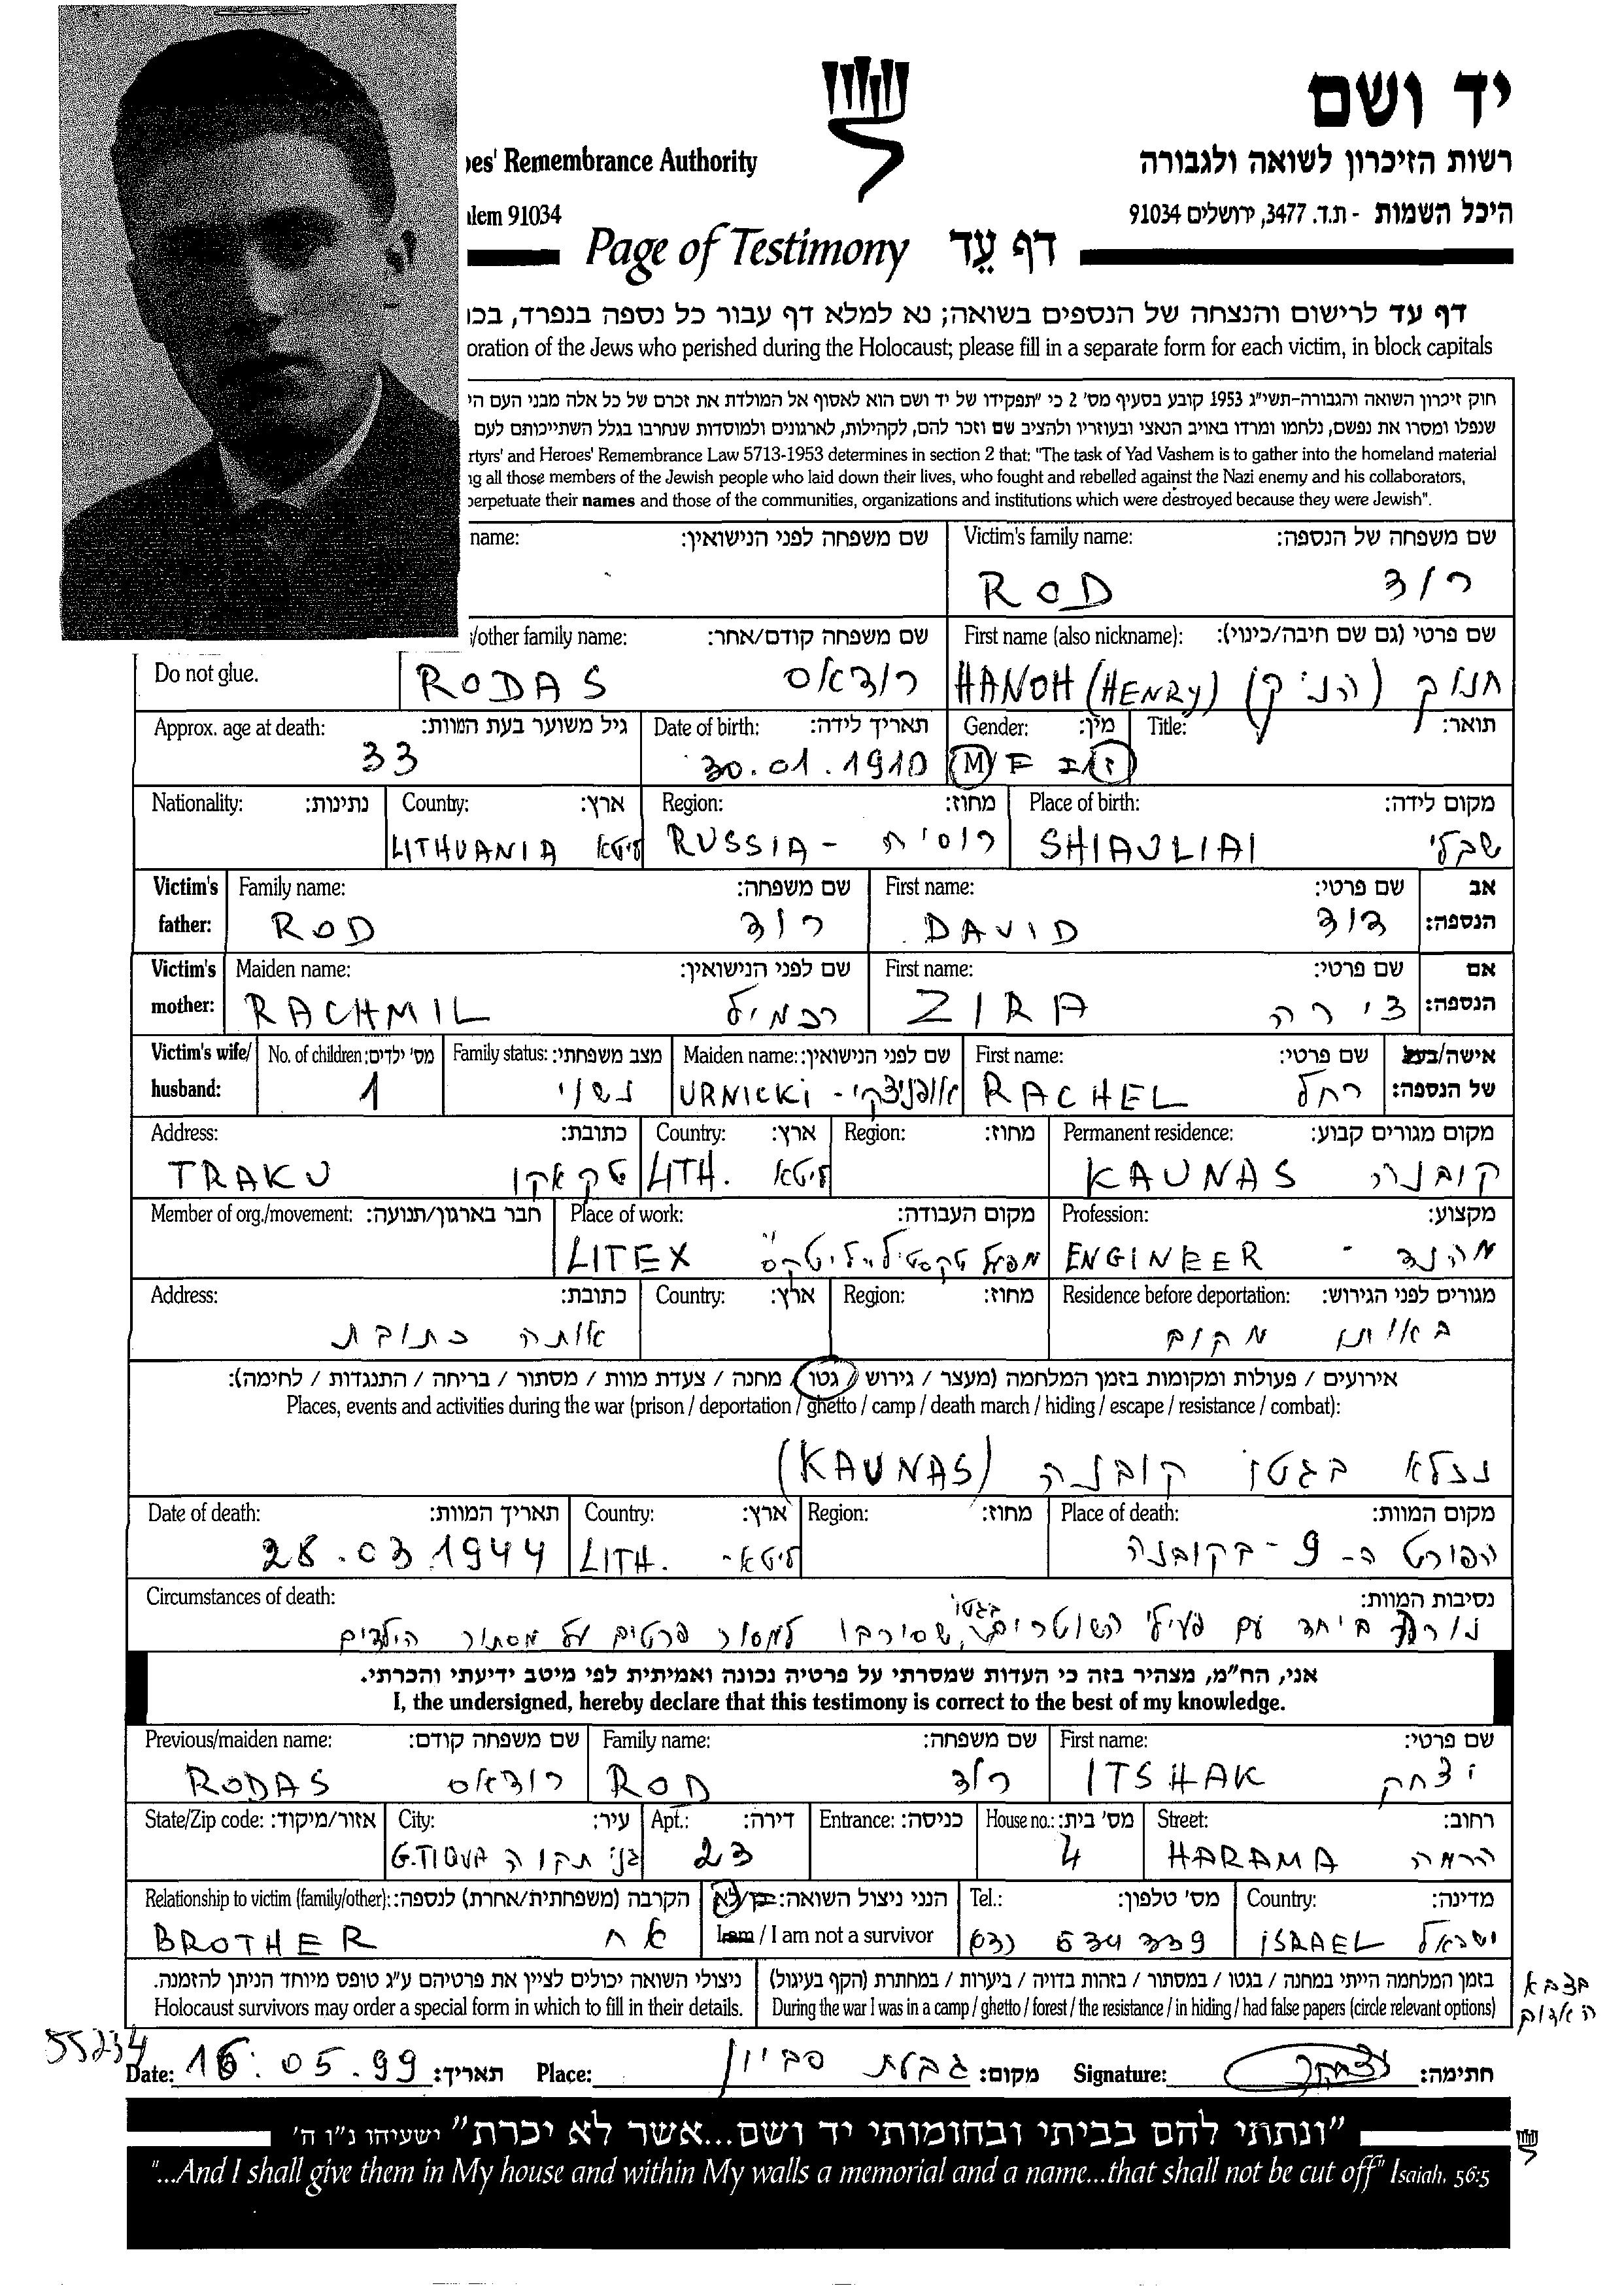 יד ושם
oes' Remembrance Authority רשות הזיכרון לשואה ולגבורה
alem 91034 היכל השמות - ת.ד. 3477, ירושלים 91034
Page of Testimony דף עֵד
דף עד לרישום והנצחה של הנספים בשואה; נא למלא דף עבור כל נספה בנפרד, בכו
oration of the Jews who perished during the Holocaust; please fill in a separate form for each victim, in block capitals
חוק זיכרון השואה והגבורה-תשי"ג 1953 קובע בסעיף מס' 2 כי "תפקידו של יד ושם הוא לאסוף אל המולדת את זכרם של כל אלה מבני העם הי
שנפלו ומסרו את נפשם, נלחמו ומרדו באויב הנאצי ובעוזריו ולהציב שם וזכר להם, לקהילות, לארגונים ולמוסדות שנחרבו בגלל השתייכותם לעם
rtyrs' and Heroes' Remembrance Law 5713-1953 determines in section 2 that: "The task of Yad Vashem is to gather into the homeland material
ng all those members of the Jewish people who laid down their lives, who fought and rebelled against the Nazi enemy and his collaborators,
perpetuate their names and those of the communities, organizations and institutions which were destroyed because they were Jewish".
name: שם משפחה לפני הנישואין: Victim's family name: שם משפחה של הנספה:
ROD רוד
/other family name: שם משפחה קודם/אחר: First name (also nickname): שם פרטי (גם שם חיבה/כינוי):
Do not glue. RODAS רודאס HANOH (HENRY) חנוך (הניק)
Approx. age at death: גיל משוער בעת המוות: Date of birth: תאריך לידה: Gender: מין: Title: תואר:
33 30.01.1910 M/F ז/נ
Nationality: נתינות: Country: ארץ: Region: מחוז: Place of birth: מקום לידה:
LITHUANIA ליטא RUSSIA - רוסיה SHIAULIAI שבלי
Victim's father: Family name: שם משפחה: First name: שם פרטי: אב הנספה:
ROD רוד DAVID דוד
Victim's mother: Maiden name: שם לפני הנישואין: First name: שם פרטי: אם הנספה:
RACHMIL רכמיל ZIRA צירה
Victim's wife/ husband: No. of children: מס' ילדים: Family status: מצב משפחתי: Maiden name: שם לפני הנישואין: First name: שם פרטי: אישה/בעל של הנספה:
1 נשוי URNICKI - אורניצקי RACHEL רחל
Address: כתובת: Country: ארץ: Region: מחוז: Permanent residence: מקום מגורים קבוע:
TRAKU טראקו LITH. ליטא KAUNAS קובנה
Member of org./movement: חבר בארגון/תנועה: Place of work: מקום העבודה: Profession: מקצוע:
LITEX מפעל טקסטיל "ליטקס" ENGINEER - מהנדס
Address: כתובת: Country: ארץ: Region: מחוז: Residence before deportation: מגורים לפני הגירוש:
אותה כתובת באותו מקום
אירועים / פעולות ומקומות בזמן המלחמה (מעצר / גירוש / גטו / מחנה / צעדת מוות / מסתור / בריחה / התנגדות / לחימה):
Places, events and activities during the war (prison / deportation / ghetto / camp / death march / hiding / escape / resistance / combat):
נכלא בגטו קובנה (KAUNAS)
Date of death: תאריך המוות: Country: ארץ: Region: מחוז: Place of death: מקום המוות:
28.03.1944 LITH. ליטא- הפורט ה-9 - בקובנה
Circumstances of death: נסיבות המוות:
נורה ביחד עם פעילי השוטרים בגטו, שסירבו למסור פרטים על מסתור הילדים
אני, הח"מ, מצהיר בזה כי העדות שמסרתי על פרטיה נכונה ואמיתית לפי מיטב ידיעתי והכרתי.
I, the undersigned, hereby declare that this testimony is correct to the best of my knowledge.
Previous/maiden name: שם משפחה קודם: Family name: שם משפחה: First name: שם פרטי:
RODAS רודאס ROD רוד ITSHAK יצחק
State/Zip code: אזור/מיקוד: City: עיר: Apt.: דירה: Entrance: כניסה: House no.: מס' בית: Street: רחוב:
G.TIQVA גני תקוה 23 4 HARAMA הרמה
Relationship to victim (family/other): הקרבה (משפחתית/אחרת) לנספה: הנני ניצול השואה: כן/לא Tel.: מס' טלפון: Country: מדינה:
BROTHER אח I am / I am not a survivor (03) 634 339 ISRAEL ישראל
ניצולי השואה יכולים לציין את פרטיהם ע"ג טופס מיוחד הניתן להזמנה. בזמן המלחמה הייתי במחנה / בגטו / במסתור / בזהות בדויה / ביערות / במחתרת (הקף בעיגול)
Holocaust survivors may order a special form in which to fill in their details. During the war I was in a camp / ghetto / forest / the resistance / in hiding / had false papers (circle relevant options)
בצבא
האדום
55234
Date: 16.05.99 תאריך: Place: גבעת סביון מקום: Signature: חתימה:
"ונתתי להם בביתי ובחומותי יד ושם...אשר לא יכרת" ישעיהו נ"ו ה'
"...And I shall give them in My house and within My walls a memorial and a name...that shall not be cut off" Isaiah, 56:5